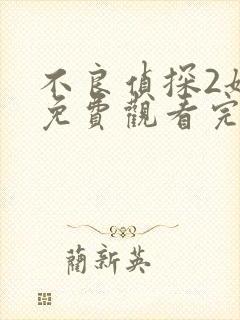 不良偵探2
免費觀看完
藺新英